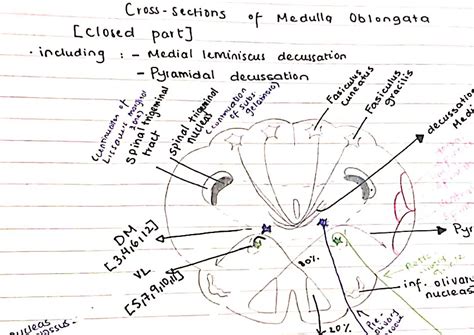 Cross-sections of Medulla Oblongata
[closed part]
• including : - Medial leminiscus decussation
- Pyramidal decussation
Fasiculus cuneatus
Fasiculus gracilis
(continuation of Lissauer's marginal zone)
spinal trigeminal tract
spinal trigeminal nucleus
(continuation of subs. gelatinosa)
decussation
Medi
DM
[3,4,6,12]
VL
[5,7,9,10,11]
80%
20%
Pyr
inf. olivary
nucleus